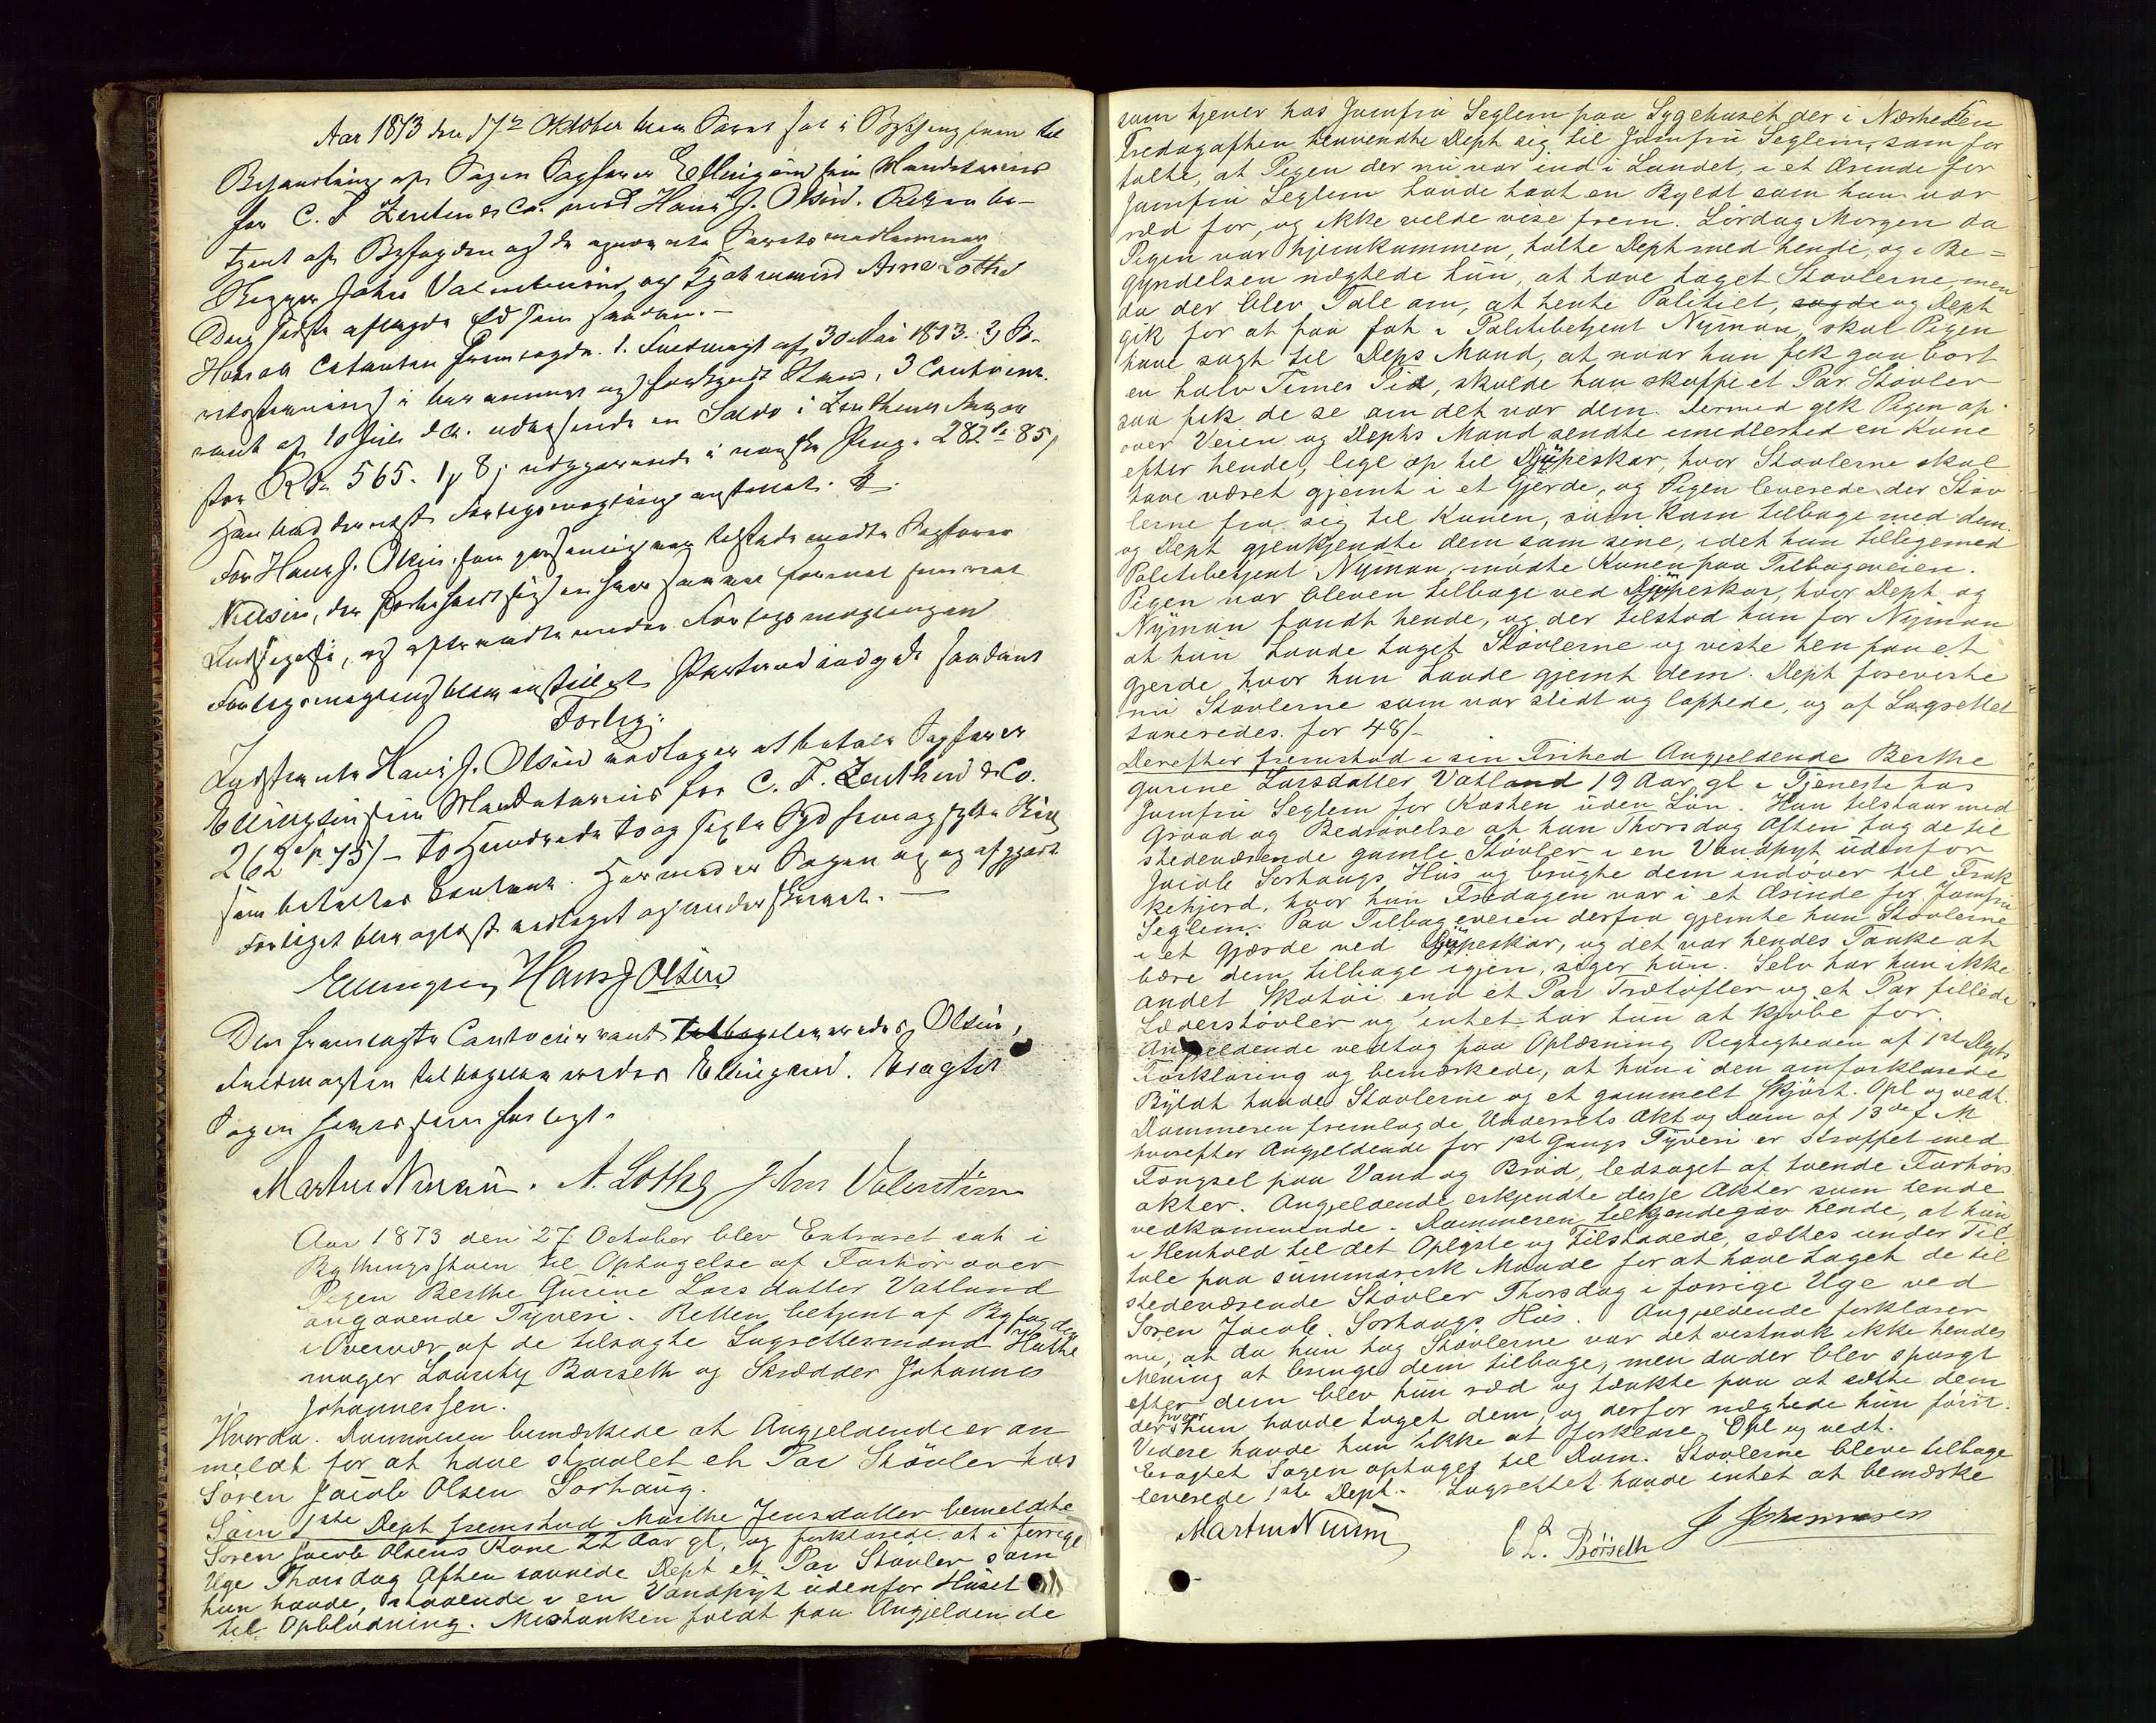 Aar 1873 den 17de Oktober blev Extraret sat i Bythingstuen til
Behandling af Sagen Sagfører Ellingsen som Mandatarius
for C. F. Zeuthen & Co. mod Hans J. Olsen. Retten be-
tjent af Byfogden og de opnævnte Laurettesmedlemmer
Skipper John Valentinsen og Kjøbmand Arne Lothe
Den sidste aflagde Ed som saadan.-
Hvorda Citanten fremlagde 1. Fuldmagt af 30 Mai 1873. 2)
3 Contocur-
rant af 10 Juli d.A. udvisende en Saldo i Zeuthens Favør
stor Rd. 565. 1 8 udgjørende i norske Penge 282 Sp 85/
Han bad dernæst Forligsmægling anstillet.
For Hans J. Olsen som personlig var tilstede mødte Sagfører
Nielsen, der
Indsigelse, og
Forligsmægling blev anstillet Parterne indgik saadant
Forlig:
Indstevnte Hans J. Olsen vedtager at betale Sagfører
Ellingsen som Mandatarius for C. F. Zeuthen & Co.
262 Sp 75/ - to Hundrede to og sexti Spd fem og sytti Skill
som betaltes contant. Hermed er Sagen og afgjort
Forliget blev oplæst vedtaget og underskrevet.-
Ellingsen Hans J Olsen
Den fremlagte Contocurrant tilbageleveredes Olsen,
Fuldmagten tilbageleveredes Ellingsen. Eragtet
Sagen hæves som forligt.
Martin Nissen. A. Lothe John Valentinsen
Aar 1873 den 27 October blev Extraret sat i
Bythingsstuen til Optagelse af Forhør over
Pigen Berthe Gurine Larsdatter Vatland
angaaende Tyveri. Retten betjent af Byfogden
i Overvær af de tilsagte Lagrettesmænd Hatte
mager Lauritz Børseth og Skrædder Johannes
Johannessen.
Hvorda. Dommeren bemærkede at Angjeldende er an
meldt for at have stjaalet et Par Støvler hos
Søren Jacob Olsen Sørhaug.
Som 1ste Dept fremstod Marthe Jensdatter bemeldte
Søren Jacob Olsens Kone 22 Aar gl, og forklarede at i forrige
Uge Thorsdag Aften savnede Dept et Par Støvler som
hun havde, staaende i en Vandpyt udenfor Huset
til Opblødning. Mistanken faldt paa Angjeldende
som tjener hos Jomfru Seglem paa Sygehuset der i Nærheden
Fredagaften henvendte Dept sig til Jomfru Seglem, som for
talte, at Pigen der nu var ind i Landet, i et Ærende for
Jomfru Seglem havde havt en Byldt som hun var
ræd for, og ikke vilde vise frem. Lørdag Morgen da
Pigen var hjemkommen, talte Dept med hende, og i Be=
gyndelsen nægtede hun, at have taget Støvlerne, men
da der blev Tale om, at hente Politiet, sagde og Dept
gik for at faa fat i Politibetjent Nyman, skal Pigen
have sagt til Deps Mand, at naar hun fik gaa bort
en halv Times Tid, skulde hun skaffe et Par Støvler
saa fik de se om det var dem. Dermed gik Pigen op-
over Veien og Depts Mand sendte imedlertid en Kone
efter hende, lige op til Djupeskar, hvor Støvlerne skal
have været gjemt i et Gjerde, og Pigen leverede der Støv
lerne fra sig til Konen, som kom tilbage med dem
og Dept gjenkjendte dem som sine, idet hun tilligemed
Politibetjent Nyman, mødte Konen paa Tilbageveien.
Pigen var bleven tilbage ved Djupeskar, hvor Dept og
Nyman fandt hende, og der tilstod hun for Nyman
at hun havde taget Støvlerne og viste hen paa et
Gjerde hvor hun havde gjemt dem. Dept foreviste
nu Støvlerne som var slidt og lappede, og af Lagrettet
taxeredes for 48/-
Derefter fremstod i sin Frihed Angjeldende Berthe
Gurine Larsdatter Vatland 19 Aar gl i Tjeneste hos
Jomfru Seglem for Kosten uden Løn. Hun tilstaar med
Graad og Bedrøvelse at hun Thorsdag Aften tog de til
stedeværende gamle Støvler i en Vandpyt udenfor
Jacob Sørhaugs Hus og brugte dem indover til Frak
kefjord, hvor hun Fredagen var i et Ærinde for Jomfru
Seglem. Paa Tilbageveien derfra gjemte hun Støvlerne
i et Gjærde ved Djupeskar, og det var hendes Tanke at
bære dem tilbage igjen, siger hun. Selv har hun ikke
andet Skotøi end et Par Trætøfler og et Par fillede
Læderstøvler og intet har hun at kjøbe for.
Angjeldende vedtog paa Oplæsning Rigtigheden af 1ste Depts
Forklaring og bemærkede, at hun i den omforklarede
Byldt havde Støvlerne og et gammelt Skjørt. Opl og vedt.
Dommeren fremlagde Underrets Akt og Dom af 3die f. M
hvorefter Angjeldende for 1ste Gangs Tyveri er straffet med
Fængsel paa Vand og Brød, ledsaget af tvende Forhørs
akter. Angjeldende erkjendte disse Akter som hende
vedkommende. Dommeren tilkjendegav hende, at hun
i Henhold til det Oplyste og Tilstaaede, sættes under Til-
tale paa summarisk Maade for at have taget de til
stedeværende Støvler Thorsdag i forrige Uge ved
Søren Jacob Sørhaugs Hus. Angjeldende forklarer
nu, at da hun tog Støvlerne var det vistnok ikke hendes
Mening at bringe dem tilbage, men da der blev spurgt
efter dem blev hun ræd og tænkte paa at sætte dem
der hvor hun havde taget dem, og derfor nægtede hun først.
Videre havde hun ikke at forklare. Opl og vedt.
Eragtet Sagen optages til Dom. Støvlerne bleve tilbage
leverede 1ste Dept. Lagrettet havde intet at bemærke
Martin Nissen C L. Børseth J Johannesen